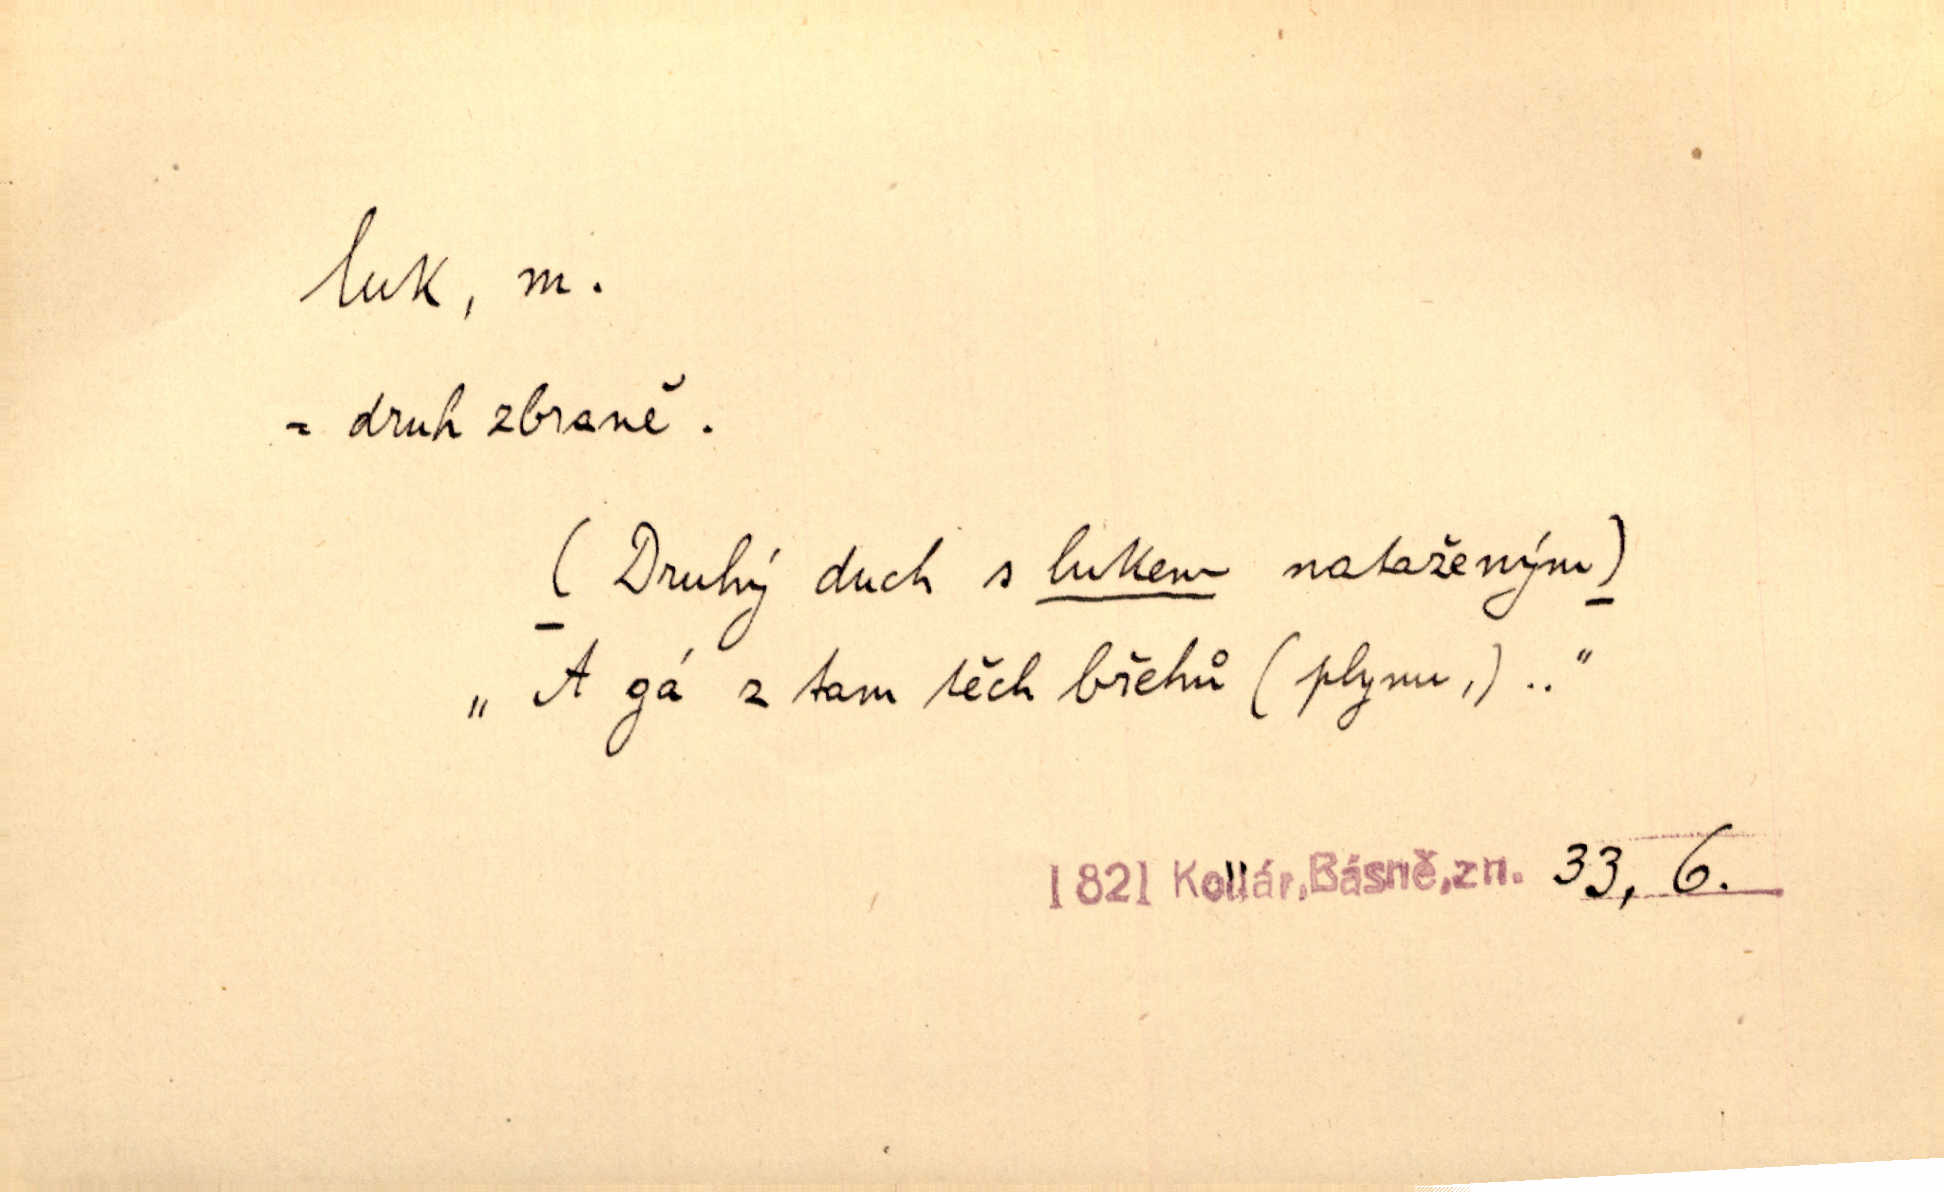 luk, m.
= druh zbraně.
(Druhý duch s lukem nataženým)
„A gá z tam těch břehů (plynu,)..“
1821 Kollár, Básně, zn. 33, 6.